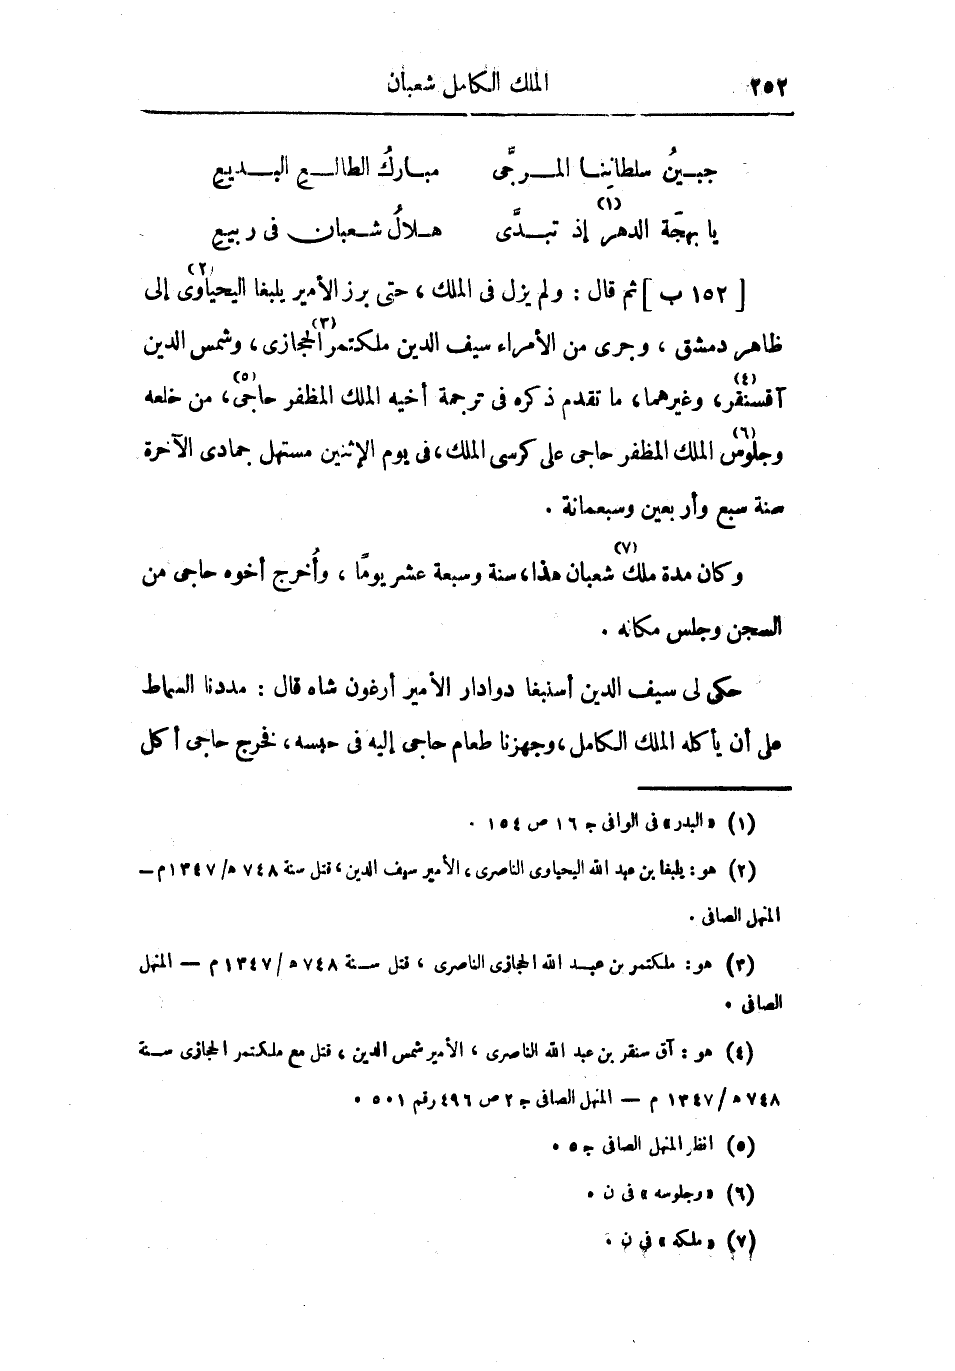 ٢٥٢ الملك الكامل شعبان
جبينُ سلطانِنا المرجَّى مباركُ الطالع البديع
يا بهجَة الدهر (١) إذ تبدَّى هلالُ شعبان فى ربيع
[ ١٥٢ ب ] ثم قال : ولم يزل فى الملك ، حتى برز الأمير يلبغا اليحياوى (٢) إلى
ظاهر دمشق ، وجرى من الأمراء سيف الدين ملكتمر الحجازى (٣) ، وشمس الدين
آقسنقر (٤) ، وغيرهما ، ما تقدم ذكره فى ترجمة أخيه الملك المظفر حاجى (٥) ، من خلعه
وجلوس (٦) الملك المظفر حاجى على كرسى الملك ، فى يوم الإثنين مستهل جمادى الآخرة
سنة سبع وأربعين وسبعمائة .
وكان مدة ملك (٧) شعبان هذا ، سنة وسبعة عشر يومًا ، وأُخرج أخوه حاجى من
السجن وجلس مكانه .
حكى لى سيف الدين أسنبغا دوادار الأمير أرغون شاه قال : مددنا السماط
على أن يأكله الملك الكامل ، وجهزنا طعام حاجى إليه فى حبسه ، فخرج حاجى أكل
(١) « البدر » فى الوافى جـ ١٦ ص ١٥٤ .
(٢) هو : يلبغا بن عبد الله اليحياوى الناصرى ، الأمير سيف الدين ، قتل سنة ٧٤٨ هـ/ ١٣٤٧ م —
المنهل الصافى .
(٣) هو : ملكتمر بن عبد الله الحجازى الناصرى ، قتل سنة ٧٤٨ هـ / ١٣٤٧ م — المنهل
الصافى .
(٤) هو : آق سنقر بن عبد الله الناصرى ، الأمير شمس الدين ، قتل مع ملكتمر الحجازى سنة
٧٤٨ هـ / ١٣٤٧ م — المنهل الصافى جـ ٢ ص ٤٩٦ رقم ٥٠١ .
(٥) انظر المنهل الصافى جـ ٥ .
(٦) « وجلوسه » فى ن .
(٧) « ملكه » فى ن .